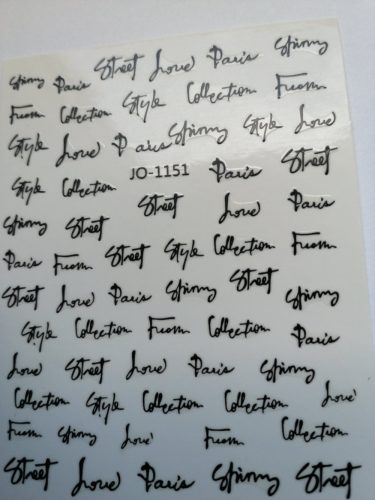 Spinny Paris Street Love Paris Spinny
From Collection Style Collection From
Style Love Paris Spinny Style Love
Style Collection JO-1151 Paris Street
Spinny Street Street Love Paris
Paris From Street Style Collection From
Street Love Paris Spinny Street Spinny
Style Collection From Collection Paris
Love Street Love Paris Spinny
Collection Style Collection Collection Love
From Spinny Love From Collection
Street Love Paris Spinny Street